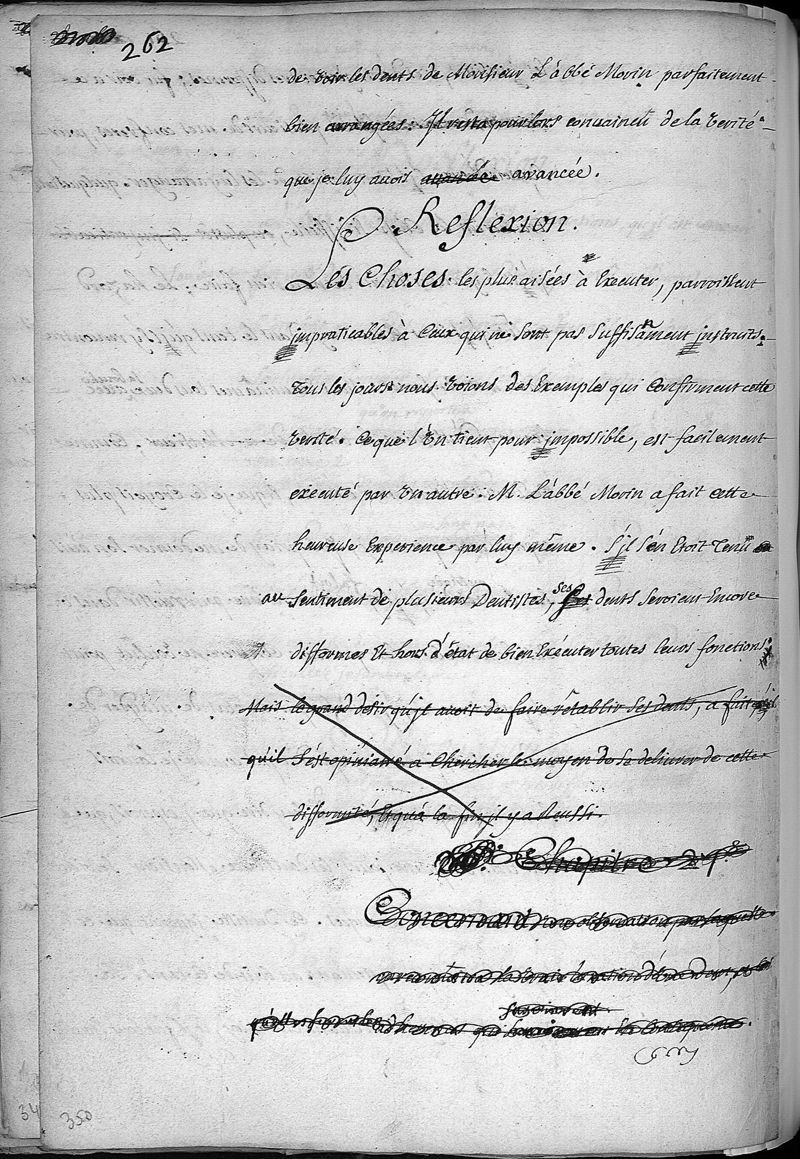 262
de voir les dents de Monsieur L'abbé Morin parfaitement
bien arrangées. Il resta pour lors convaincu de la verité
que je luy avois avancée.
Reflexion.
Les Choses les plus aisées à Executer, parroissent
impraticables à Ceux qui ne sont pas suffisament instruits.
Tous les jours nous voïons des Exemples qui Confirment cette
verité. Ce que l'un tient pour impossible, est facilement
executé par un autre. M. L'abbé Morin a fait cette
heureuse Experience par luy même. S'il s'en Etoit Tenu
au sentiment de plusieurs Dentistes, ses dents seroient Encore
difformes Et hors d'état de bien Executer toutes leurs fonctions
Mais le grand desir qu'il avoit de faire rétablir ses dents, a fait
qu'il s'est opiniatré a Chercher le moyen de se delivrer de cette
difformité, Et qu'à la fin il y a Reussi.
Chapitre
Concernant une observation par laquelle
350